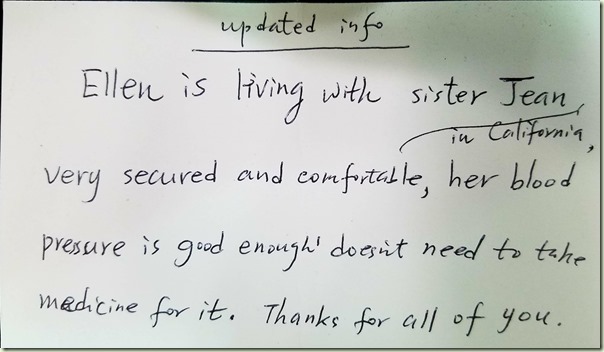 updated info
Ellen is living with sister Jean,
in California,
very secured and comfortable, her blood
pressure is good enough' doesn't need to take
medicine for it. Thanks for all of you.